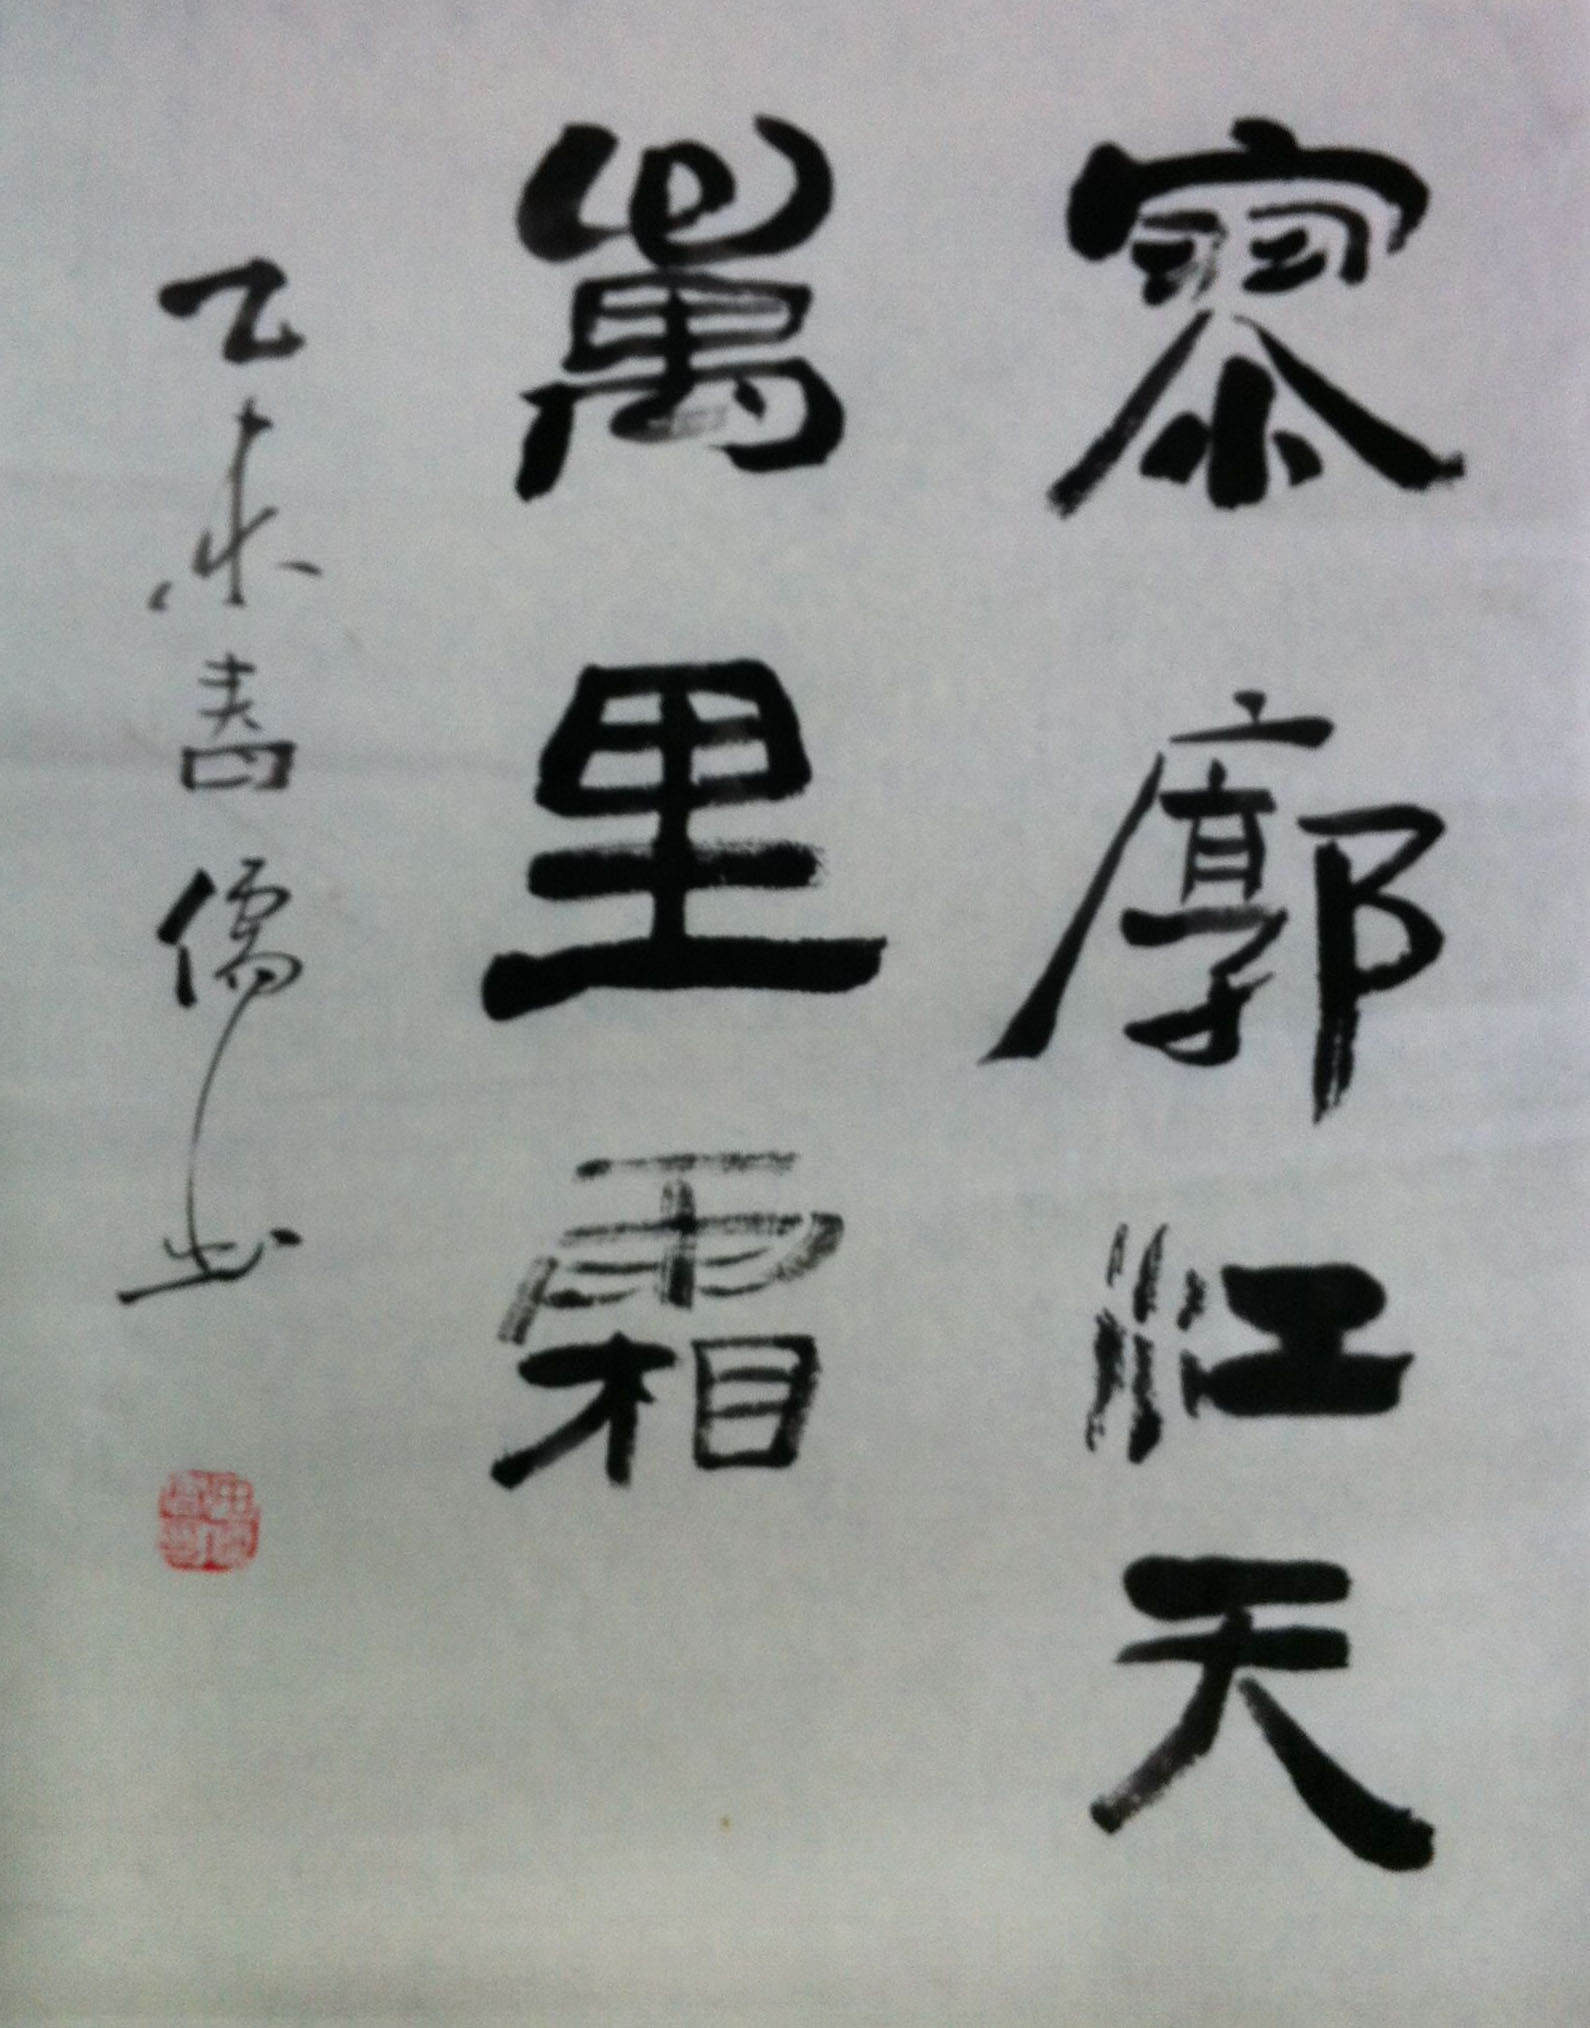 寥廓江天
萬里霜
乙未春儒